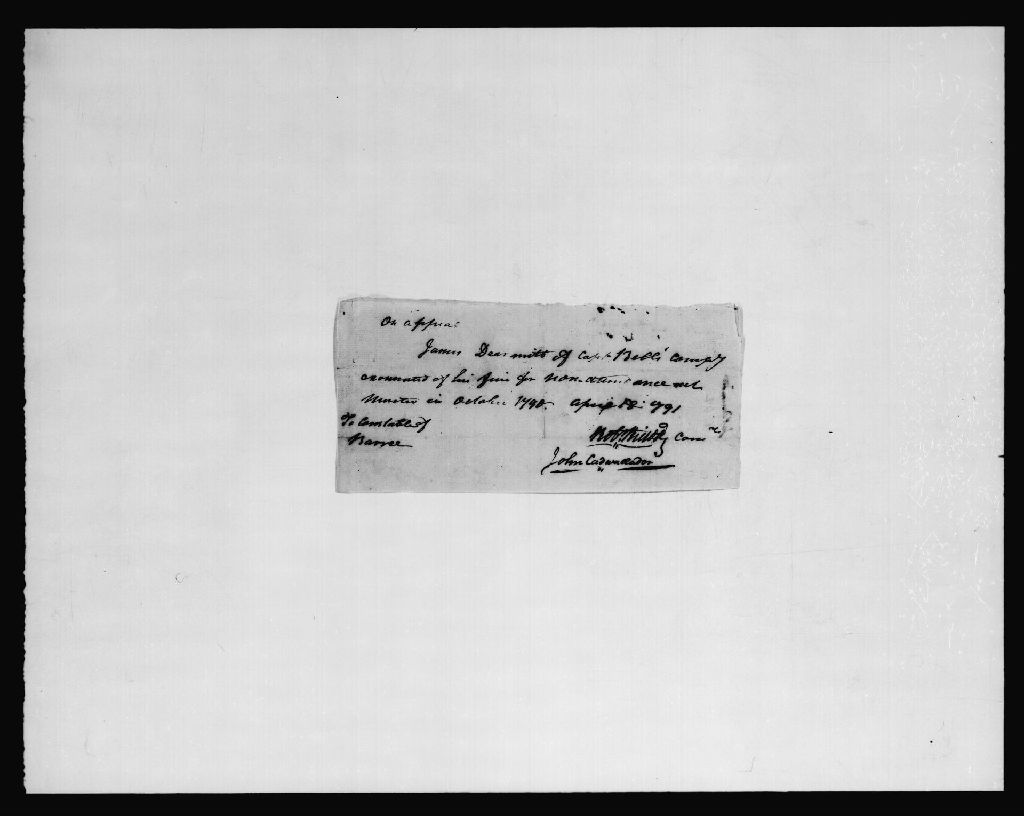 On appeal
James Dearmitt of Capt. Bell's Company
exonerated of his fine for non-attendance at
Muster in October 1790. April 18th 1791
To Constable of
Barree
Com
John Cadwallader